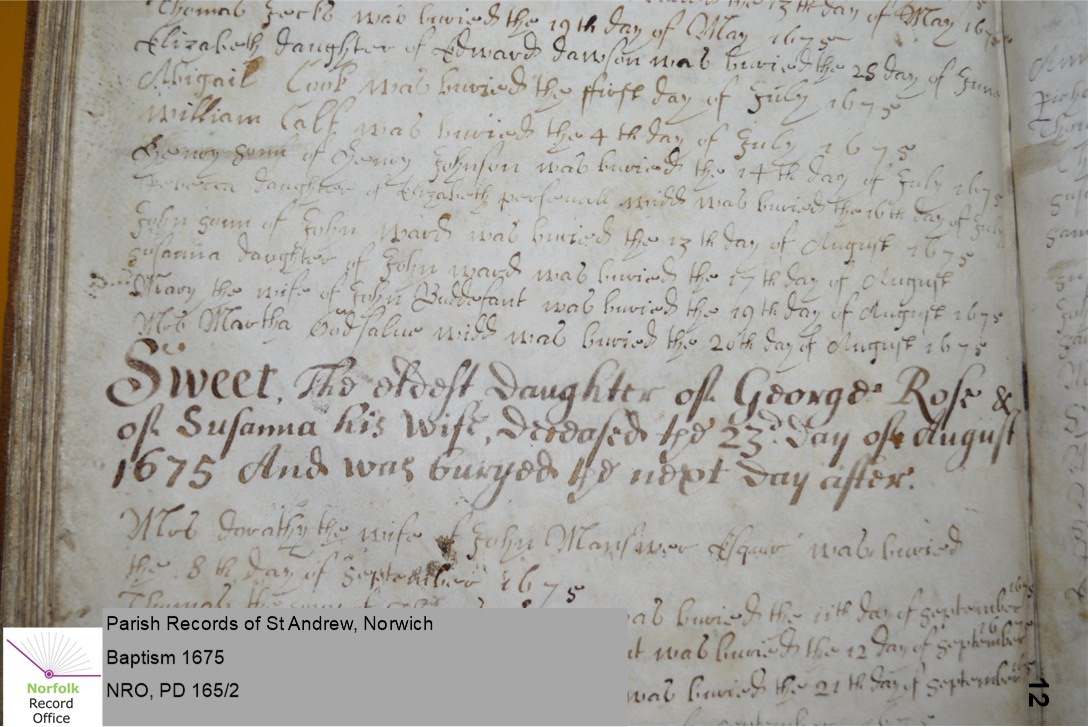 Thomas Jecks was buried the 19th day of May 1675
Elizabeth daughter of Edward Dawson was buried the 28 day of June
Abigail Cook was buried the first day of July 1675
William Calf was buried the 4th day of July 1675
Henry sonn of Henry Johnson was buried the 14th day of July 1675
Rebecca daughter of Elizabeth widd was buried the 16th day of July
John sonn of John Ward was buried the 13th day of August 1675
Susanna daughter of John Ward was buried the 17th day of August
Mary the wife of John was buried the 19th day of August 1675
Mrs Martha Godsalue widd was buried the 20th day of August 1675
Sweet, The eldest Daughter of George Rose &
of Susanna his Wife, deceased the 23d. day of August
1675 And was buryed the next day after.
Mrs dorathy the wife of John Esquir was buried
the 8th day of September 1675
Thomas the
was buried the 11th day of September 1675
was buried the 12 day of September
was buried the 21th day of September
12
Parish Records of St Andrew, Norwich
Baptism 1675
NRO, PD 165/2
Norfolk
Record
Office